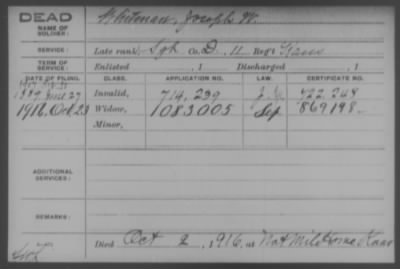 DEAD
NAME OF SOLDIER:
Whiteman, Joseph W.
SERVICE:
Late rank, Sgt Co. D, 11 Reg't Kans
TERM OF SERVICE:
Enlisted , 1 Discharged , 1
DATE OF FILING. CLASS. APPLICATION NO. LAW. CERTIFICATE NO.
1889, June 27 Invalid, 714,239 422,248
1916, Oct 23 Widow, 1083005 Sep 869198
Minor,
ADDITIONAL SERVICES:
REMARKS:
Died Oct 2, 1916, at Nat Mil Home Kans